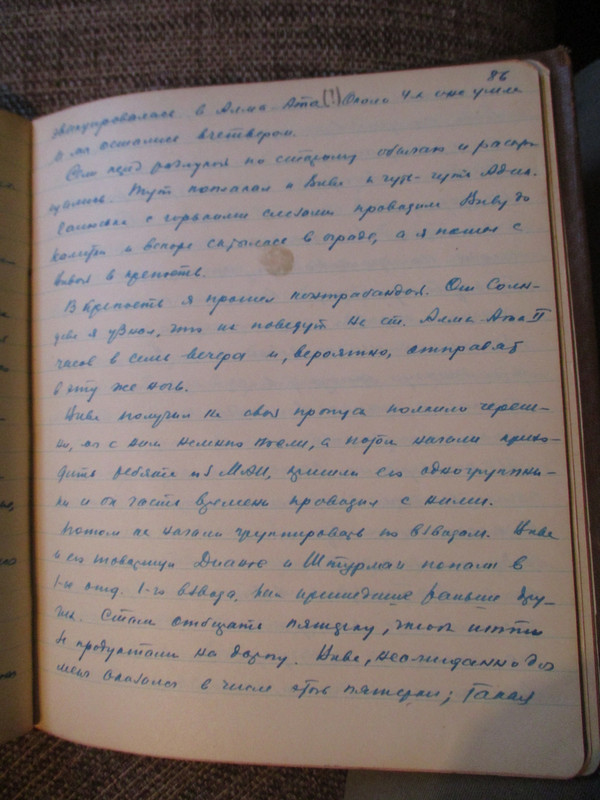 86
эвакуировалась в Алма-Ата (!) Около 4х они ушли
и мы остались вчетвером.
Сели перед разлукой по старому обычаю и распро-
щались. Тут поплакал и Вива и чуть-чуть Адик.
с горькими слезами проводили Виву до
калитки и вскоре скрылась в ограде, а я пошел с
Вивой в крепость.
В крепость я прошел контрабандой. От Солн-
цева я узнал, что их поведут на ст. Алма Ата II
часов в семь вечера и, вероятно, отправят
в эту же ночь.
Вива получил на свой пропуск полкило череш-
ни, мы с ним немного поели, а потом начали прихо-
дить ребята из МАИ, пришли его одногруппни-
ки и он часть времени проводил с ними.
Потом их начали группировать по взводам. Вива
и его товарищи и Штурман попали в
1-ое отд. 1-го взвода, как пришедшие раньше дру-
гих. Стали отбирать пятерку, чтоб итти
за продуктами на дорогу. Вива, неожиданно для
меня оказался в числе этой пятерки; Такая